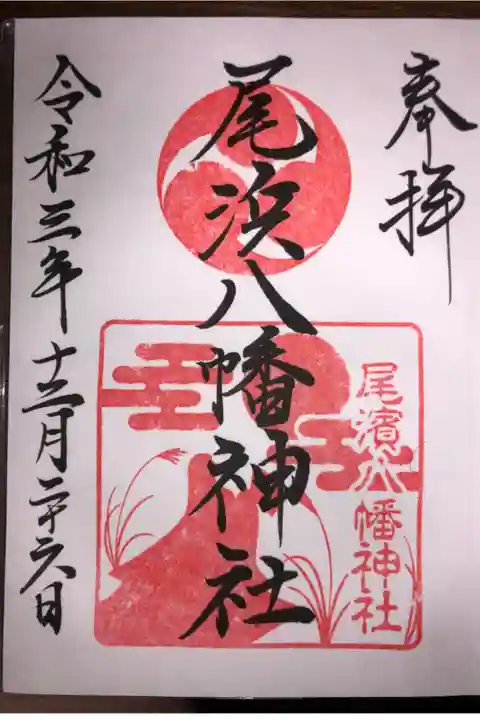 奉拝
尾濱八幡神社
尾浜八幡神社
令和三年十二月二十六日